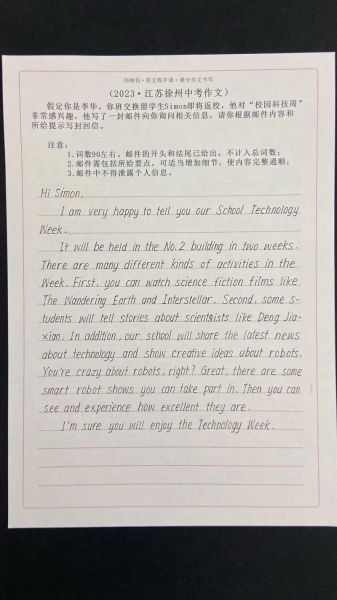 邱柳民·英文练字课·满分作文书写
（2023·江苏徐州中考作文）
假定你是李华。你班交换留学生Simon即将返校，他对“校园科技周”
非常感兴趣，他写了一封邮件向你询问相关信息，请你根据邮件内容和
所给提示写封回信。
注意：
1.词数90左右，邮件的开头和结尾已给出，不计入总词数；
2.邮件需包括所给要点，可适当增加细节，使内容完整通顺；
3.邮件中不得泄露个人信息。
Hi Simon,
I am very happy to tell you our School Technology
Week.
It will be held in the No.2 building in two weeks.
There are many different kinds of activities in the
Week. First, you can watch science fiction films like
The Wandering Earth and Interstellar. Second, some s-
tudents will tell stories about scientsists like Deng Jia-
xian. In addition, our school will share the latest news
about technology and show creative ideas about robots.
You're crazy about robots, right? Great, there are some
smart robot shows you can take part in. Then you can
see and experience how excellent they are.
I'm sure you will enjoy the Technology Week.